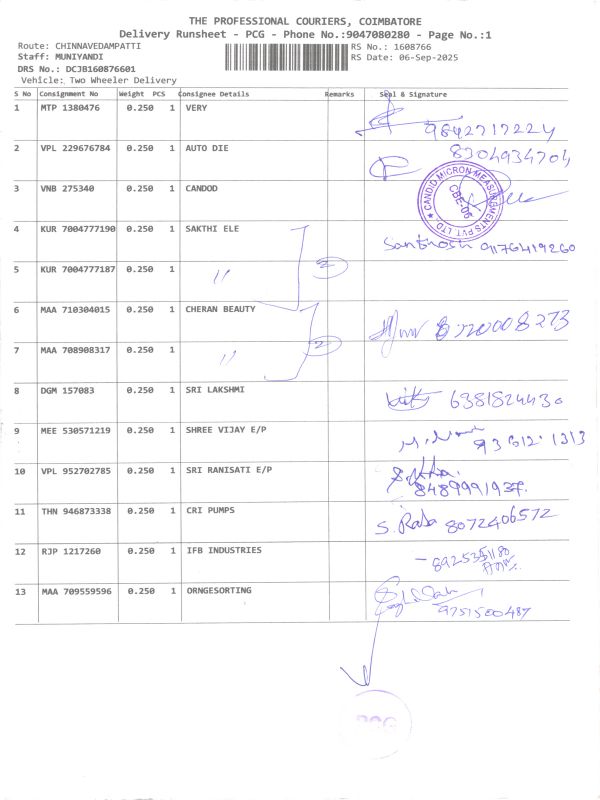 THE PROFESSIONAL COURIERS, COIMBATORE
Delivery Runsheet - PCG - Phone No.:9047080280 - Page No.:1
Route: CHINNAVEDAMPATTI RS No.: 1608766
Staff: MUNIYANDI RS Date: 06-Sep-2025
DRS No.: DCJB160876601
Vehicle: Two Wheeler Delivery
S No Consignment No Weight PCS Consignee Details Remarks Seal & Signature
1 MTP 1380476 0.250 1 VERY
9842717224
2 VPL 229676784 0.250 1 AUTO DIE 8304934704
3 VNB 275340 0.250 1 CANDOD
★ CANDID MICRON MEASUREMENTS PVT. LTD. CBE-06
4 KUR 7004777190 0.250 1 SAKTHI ELE
Santhosh 9176419260
5 KUR 7004777187 0.250 1 " 2
6 MAA 710304015 0.250 1 CHERAN BEAUTY
8220008273
7 MAA 708908317 0.250 1 " 2
8 DGM 157083 0.250 1 SRI LAKSHMI 6381824430
9 MEE 530571219 0.250 1 SHREE VIJAY E/P
10 VPL 952702785 0.250 1 SRI RANISATI E/P
8489991937.
11 THN 946873338 0.250 1 CRI PUMPS
S. Raba 8072406572
12 RJP 1217260 0.250 1 IFB INDUSTRIES
- 8925351180
13 MAA 709559596 0.250 1 ORNGESORTING
9751500487
PCG